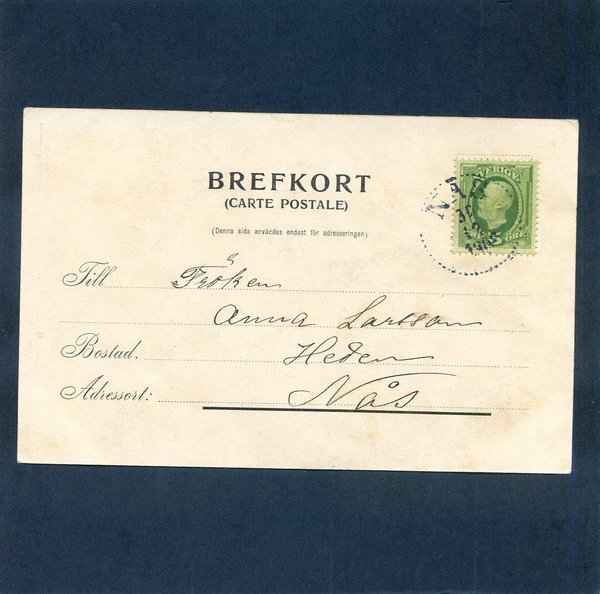 BREFKORT
(CARTE POSTALE)
(Denna sida användes endast för adresseringen)
SVERIGE
5 ÖRE
NÅS
Till Fröken
Anna Larsson
Bostad. Heden
Adressort: Nås